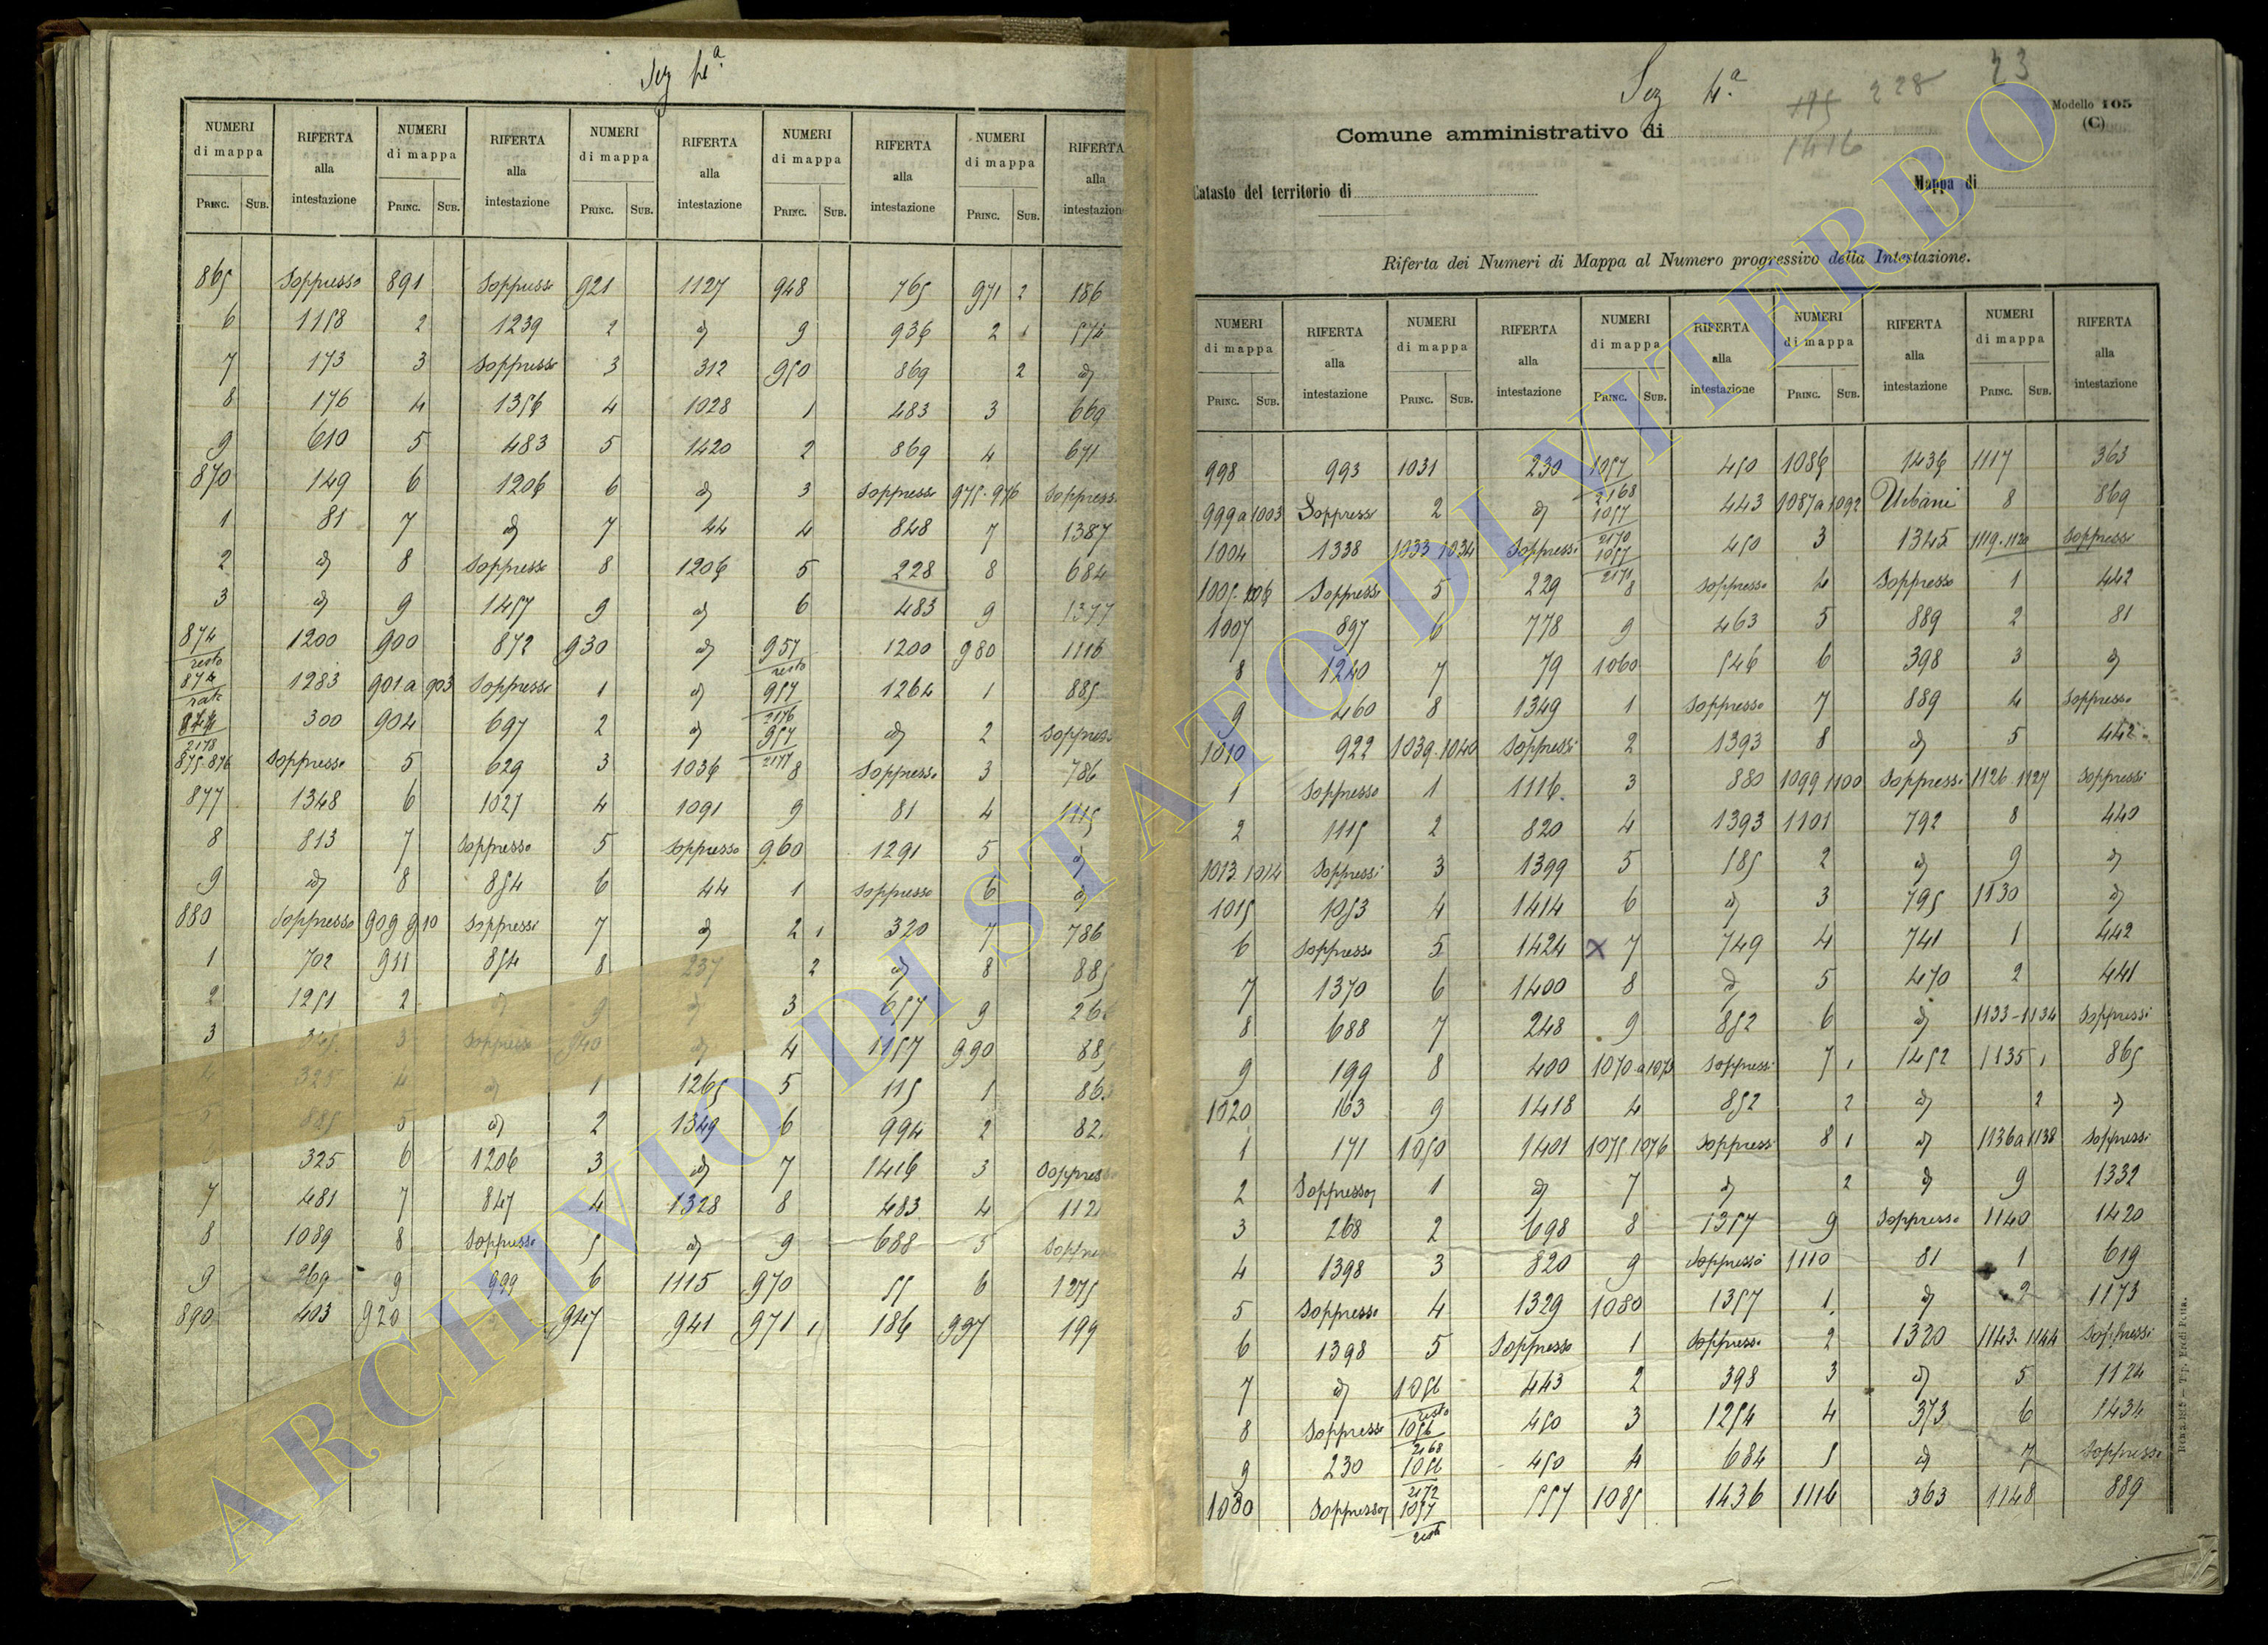 Sez 4ª
NUMERI di mappa RIFERTA alla intestazione NUMERI di mappa RIFERTA alla intestazione NUMERI di mappa RIFERTA alla intestazione NUMERI di mappa RIFERTA alla intestazione NUMERI di mappa RIFERTA alla intestazione
PRINC. SUB. PRINC. SUB. PRINC. SUB. PRINC. SUB. PRINC. SUB.
865 Soppresso 891 Soppresso 921 1127 948 765 971 2 186
6 1158 2 1239 2 id 9 936 2 1 574
7 173 3 Soppresso 3 312 950 869 2 id
8 176 4 1356 4 1028 1 483 3 669
9 610 5 483 5 1420 2 869 4 671
870 149 6 1206 6 id 3 Soppresso 975-976 Soppressi
1 81 7 id 7 44 4 848 7 1387
2 id 8 Soppresso 8 1206 5 228 8 684
3 id 9 1457 9 id 6 483 9 1377
874 resto 1200 900 872 930 id 957 resto 1200 980 1116
874 rate 1283 901 a 903 Soppressi 1 id 957 2176 1264 1 885
874 2178 300 904 697 2 id 957 2177 id 2 Soppresso
875-876 Soppresso 5 629 3 1036 8 Soppresso 3 786
877 1348 6 1027 4 1091 9 81 4 1115
8 813 7 Soppresso 5 Soppresso 960 1291 5 id
9 id 8 854 6 44 1 Soppresso 6 id
880 Soppresso 909 910 Soppressi 7 id 2 1 320 7 786
1 702 911 854 8 237 2 id 8 885
2 1251 2 id 9 id 3 657 9
3 3 Soppresso 940 id 4 1157 990
4 325 4 id 1 1265 5 115 1
5 885 5 id 2 1349 6 994 2
325 6 1206 3 id 7 1416 3 Soppresso
7 481 7 847 4 1328 8 483 4
8 1089 8 Soppresso 5 id 9 688 5
9 269 9 999 6 1115 970 55 6 1275
890 403 920 947 941 971 1 186 997 199
Sez 4ª 195 228 23
Modello 105 (C)
Comune amministrativo di 1416
Catasto del territorio di Mappa di
Riferta dei Numeri di Mappa al Numero progressivo della Intestazione.
NUMERI di mappa RIFERTA alla intestazione NUMERI di mappa RIFERTA alla intestazione NUMERI di mappa RIFERTA alla intestazione NUMERI di mappa RIFERTA alla intestazione NUMERI di mappa RIFERTA alla intestazione
PRINC. SUB. PRINC. SUB. PRINC. SUB. PRINC. SUB. PRINC. SUB.
998 993 1031 230 1057 2168 450 1086 1436 1117 363
999 a 1003 Soppressi 2 id 1057 2170 443 1087 a 1092 Urbani 8 869
1004 1338 1033 1034 Soppressi 1057 2171 450 3 1345 1119-1120 Soppressi
1005-1006 Soppressi 5 229 8 Soppresso 4 Soppresso 1 442
1007 897 6 778 9 463 5 889 2 81
8 1240 7 79 1060 546 6 398 3 id
9 460 8 1349 1 Soppresso 7 889 4 Soppresso
1010 922 1039-1040 Soppressi 2 1393 8 id 5 442
1 Soppresso 1 1116 3 880 1099 1100 Soppressi 1126-1127 Soppressi
2 1115 2 820 4 1393 1101 792 8 440
1013-1014 Soppressi 3 1399 5 185 2 id 9 id
1015 1053 4 1414 6 id 3 795 1130 id
6 Soppresso 5 1424 x 7 749 4 741 1 442
7 1370 6 1400 8 id 5 470 2 441
8 688 7 248 9 852 6 id 1133-1134 Soppressi
9 199 8 400 1070 a 1073 Soppressi 7 1 1452 1135 1 865
1020 163 9 1418 4 852 2 id 2 id
1 171 1050 1401 1075 1076 Soppressi 8 1 id 1136 a 1138 Soppressi
2 Soppresso 1 id 7 id 2 id 9 1332
3 268 2 698 8 1357 9 Soppresso 1140 1420
4 1398 3 820 9 Soppresso 1110 81 1 619
5 Soppresso 4 1329 1080 1357 1 id 2 1173
6 1398 5 Soppresso 1 Soppresso 2 1320 1143-1144 Soppressi
7 id 1056 resto 443 2 398 3 id 5 1124
8 Soppresso 1056 2168 450 3 1254 4 373 6 1434
9 230 1056 2172 450 4 684 5 id 7 Soppresso
1030 Soppresso 1057 resto 557 1085 1436 1116 363 1148 889
ARCHIVIO DI STATO DI VITERBO